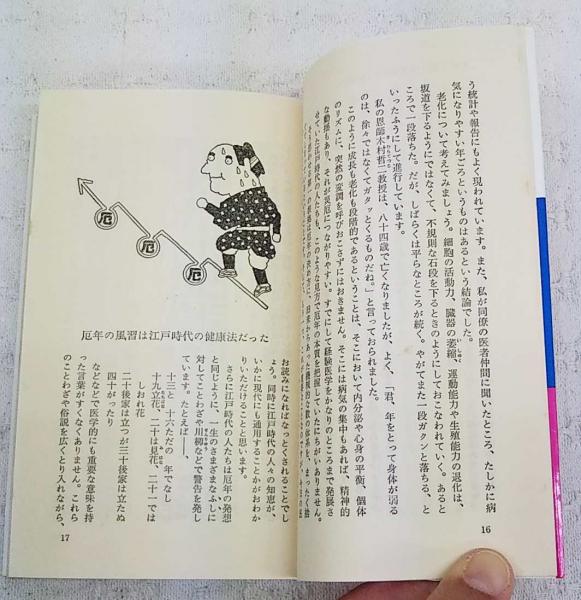 う統計や報告にもよく現われています。また、私が同僚の医者仲間に聞いたところ、たしかに病
気になりやすい年ごろというものはあるという結論でした。
老化について考えてみましょう。細胞の活動力、臓器の萎縮、運動能力や生殖能力の退化は、
坂道を下るようにではなくて、不規則な石段を下るときのようにしておこなわれていく。あると
ころで一段落ちた。だが、しばらくは平らなところが続く。やがてまた一段ガクンと落ちる、と
いったふうにして進行しています。
私の恩師木村哲二教授は、八十四歳で亡くなりましたが、よく、「君、年をとって身体が弱る
のは、徐々ではなくてガタッとくるものだね。」と言っておられました。
このように成長も老化も段階的であるということは、そこにおいて内分泌や心身の平衡、個体
のリズムに、突然の変調を呼びおこさずにはおきません。そこには病気の集中もあれば、精神的
な動揺もあり、それが災厄につながりやすい。すでにして経験医学をかなりのところまで発展さ
せていた江戸時代の人たちも、このような見方で厄年の本質を把握していたにちがいありません。
16
厄
厄
厄
厄年の風習は江戸時代の健康法だった
お読みになればなっとくされることでし
ょう。同時に江戸時代の人々の知恵が、
いかに現代にも通用することかがおわか
りいただけることと思います。
さらに江戸時代の人たちは厄年の発想
と同じように、一生のさまざまなふしに
対してことわざや川柳などで警告を発し
ています。たとえば――、
十三と 十六ただの 年でなし
十九立花、二十は見花、二十一では
しおれ花
二十後家は立つが三十後家は立たぬ
四十がったり
などなどで医学的にも重要な意味を持
った言葉がすくなくありません。これら
のことわざや俗説を広くとり入れながら、
17